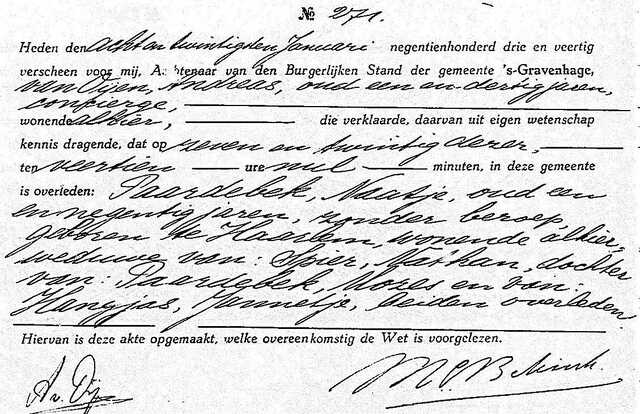 № 271.
Heden den acht en twintigsten Januari negentienhonderd drie en veertig
verscheen voor mij, Ambtenaar van den Burgerlijken Stand der gemeente 's-Gravenhage,
van Dijen, Andreas, oud een en dertig jaren,
concierge,
wonende alhier, die verklaarde, daarvan uit eigen wetenschap
kennis dragende, dat op zeven en twintig dezer,
ten veertien ure nul minuten, in deze gemeente
is overleden: Paardebek, Naatje, oud een
en negentig jaren, zonder beroep,
geboren te Haarlem, wonende alhier,
weduwe van: Spier, Nathan, dochter
van: Paardebek, Mozes en van:
Hangjas, Jannetje, beiden overleden.
Hiervan is deze akte opgemaakt, welke overeenkomstig de Wet is voorgelezen.
A v. Dij